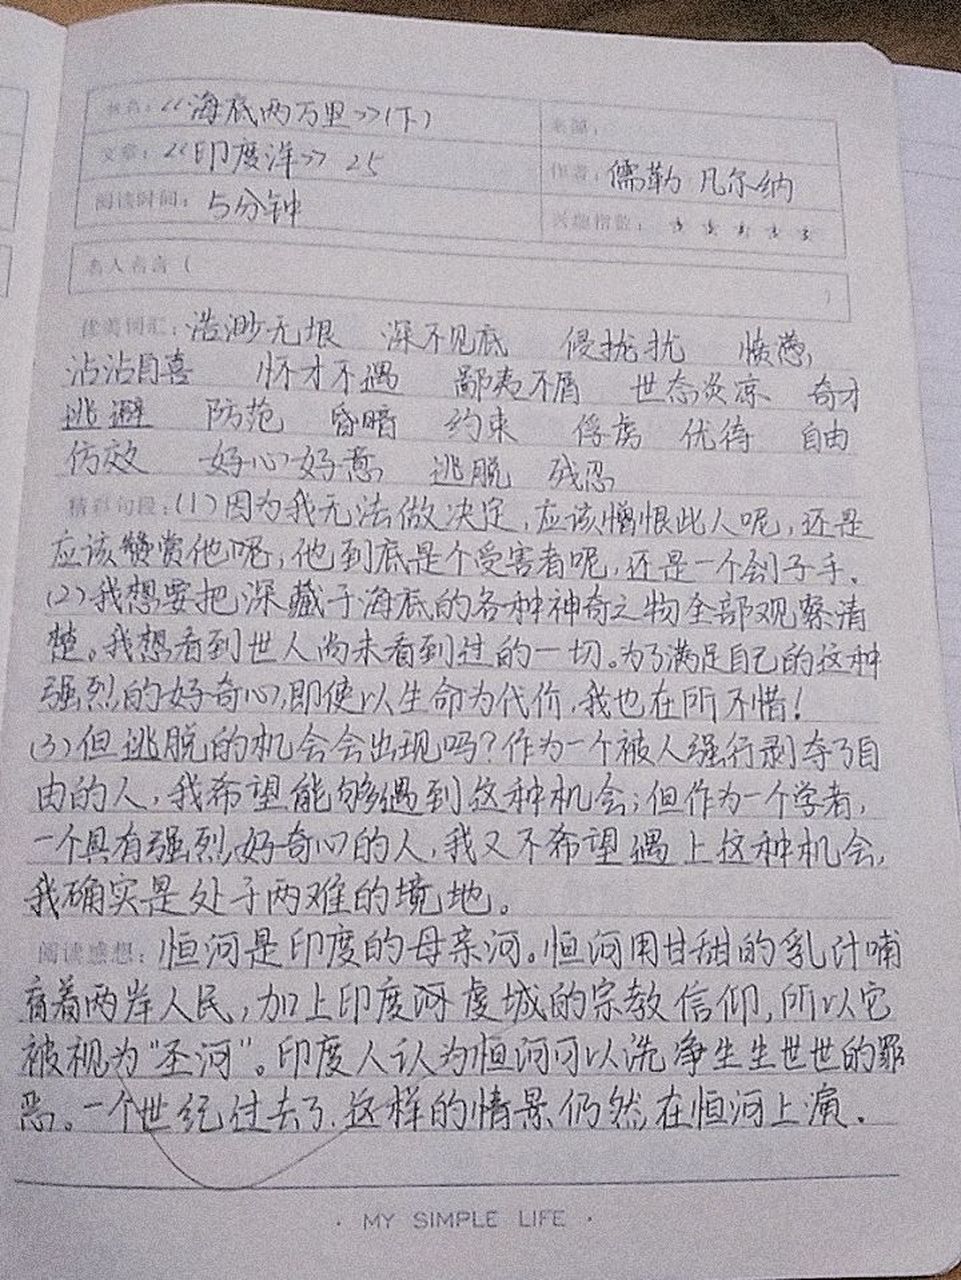 书名：《海底两万里》(下) 来源：
文章：《印度洋》 25 作者：儒勒 凡尔纳
阅读时间：5分钟 兴趣指数：
名人名言 ( )
优美词汇：浩渺无垠 深不见底 侵扰扰 愤懑，
沾沾自喜 怀才不遇 鄙夷不屑 世态炎凉 奇才
逃避 防范 昏暗 约束 俘虏 优待 自由
仿效 好心好意 逃脱 残忍
精彩句段：(1)因为我无法做决定，应该憎恨此人呢，还是
应该赞赏他呢；他到底是个受害者呢，还是一个刽子手．
(2)我想要把深藏于海底的各种神奇之物全部观察清
楚。我想看到世人尚未看到过的一切。为了满足自己的这种
强烈的好奇心，即使以生命为代价，我也在所不惜！
(3)但逃脱的机会会出现吗？作为一个被人强行剥夺了自
由的人，我希望能够遇到这种机会；但作为一个学者，
一个具有强烈好奇心的人，我又不希望遇上这种机会，
我确实是处于两难的境地。
阅读感想：恒河是印度的母亲河。恒河用甘甜的乳汁哺
育着两岸人民，加上印度河虔城的宗教信仰，所以它
被视为“圣河”。印度人认为恒河可以洗净生生世世的罪
恶。一个世纪过去了．这样的情景仍然在恒河上演．
· MY SIMPLE LIFE ·